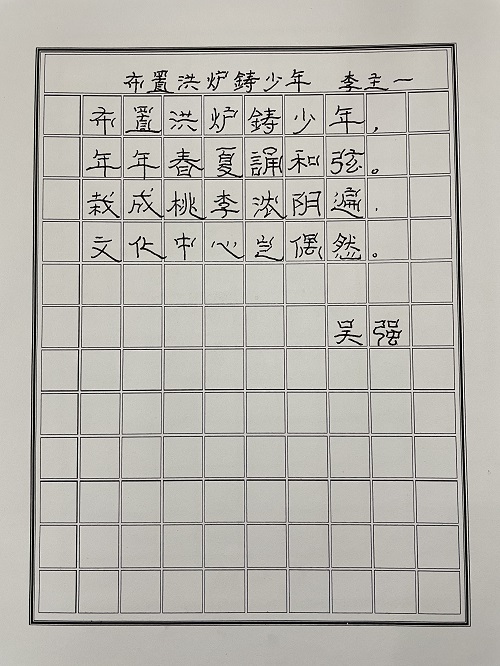 布置洪炉鋳少年 李圭一
布置洪炉鋳少年，
年年春夏誦和弦。
栽成桃李浓阴遍，
文化中心岂偶然。
吴强